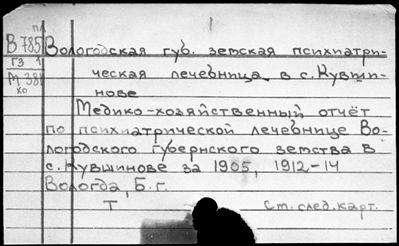 пл
В 785 Вологодская губ. земская психиатри-
ГЗ 1 ческая лечебница в с. Кувши-
М 381 нове
хо
Медико-хозяйственный отчёт
по психиатрической лечебнице Во-
логодского губернского земства в
с. Кувшинове за 1905, 1912-14
Вологда, Б. г.
Т Ст. след. карт.